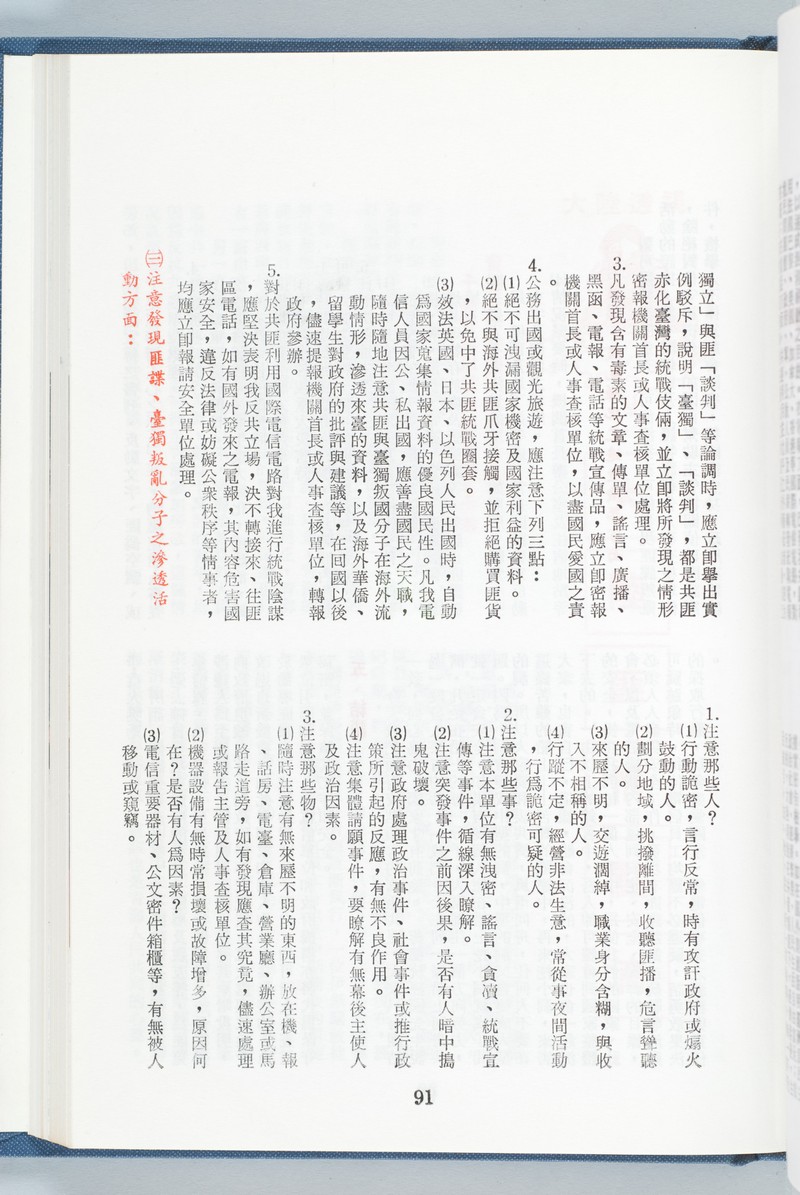 獨立」與匪「談判」等論調時，應立卽舉出實
例駁斥，說明「臺獨」、「談判」，都是共匪
赤化臺灣的統戰伎倆，並立卽將所發現之情形
密報機關首長或人事查核單位處理。
3.凡發現含有毒素的文章、傳單、謠言、廣播、
黑函、電報、電話等統戰宣傳品，應立卽密報
機關首長或人事查核單位，以盡國民愛國之責
。
4.公務出國或觀光旅遊，應注意下列三點：
⑴絕不可洩漏國家機密及國家利益的資料。
⑵絕不與海外共匪爪牙接觸，並拒絕購買匪貨
，以免中了共匪統戰圈套。
⑶效法英國、日本、以色列人民出國時，自動
爲國家蒐集情報資料的優良國民性。凡我電
信人員因公、私出國，應善盡國民之天職，
隨時隨地注意共匪與臺獨叛國分子在海外流
動情形，滲透來臺的資料，以及海外華僑、
留學生對政府的批評與建議等，在囘國以後
，儘速提報機關首長或人事查核單位，轉報
政府參辦。
5.對於共匪利用國際電信電路對我進行統戰陰謀
，應堅決表明我反共立場，決不轉接來、往匪
區電話，如有國外發來之電報，其內容危害國
家安全，違反法律或妨礙公衆秩序等情事者，
均應立卽報請安全單位處理。
㈢注意發現匪諜、臺獨叛亂分子之滲透活
動方面：
1.注意那些人？
⑴行動詭密，言行反常，時有攻訐政府或煽火
鼓動的人。
⑵劃分地域，挑撥離間，收聽匪播，危言聳聽
的人。
⑶來歷不明，交遊濶綽，職業身分含糊，與收
入不相稱的人。
⑷行蹤不定，經營非法生意，常從事夜間活動
，行爲詭密可疑的人。
2.注意那些事？
⑴注意本單位有無洩密、謠言、貪瀆、統戰宣
傳等事件，循線深入瞭解。
⑵注意突發事件之前因後果，是否有人暗中搗
鬼破壞。
⑶注意政府處理政治事件、社會事件或推行政
策所引起的反應，有無不良作用。
⑷注意集體請願事件，要瞭解有無幕後主使人
及政治因素。
3.注意那些物？
⑴隨時注意有無來歷不明的東西，放在機、報
、話房、電臺、倉庫、營業廳、辦公室或馬
路走道旁，如有發現應查其究竟，儘速處理
或報告主管及人事查核單位。
⑵機器設備有無時常損壞或故障增多，原因何
在？是否有人爲因素？
⑶電信重要器材、公文密件箱櫃等，有無被人
移動或窺竊。
91